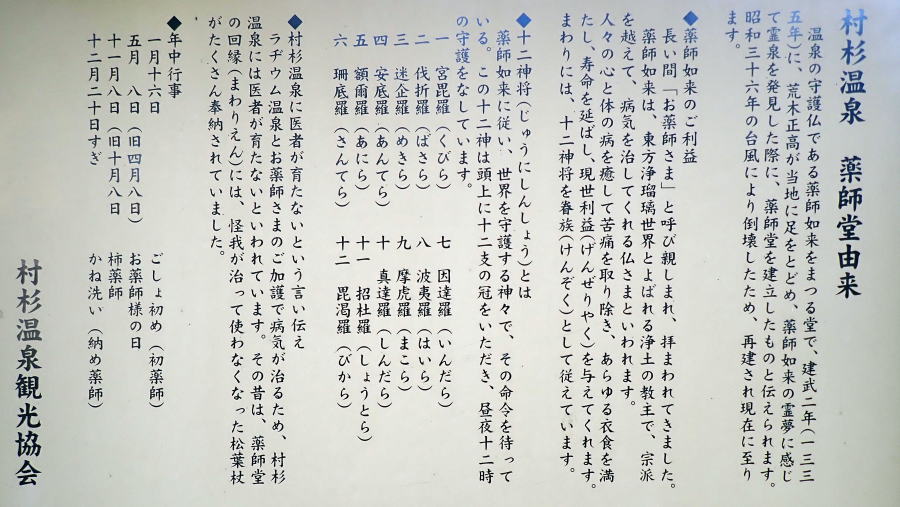 村杉温泉　薬師堂由来
温泉の守護仏である薬師如来をまつる堂で、建武二年（一三三
五年）に、荒木正高が当地に足をとどめ、薬師如来の霊夢に感じ
て霊泉を発見した際に、薬師堂を建立したものと伝えられます。
昭和三十六年の台風により倒壊したため、再建され現在に至り
ます。
◆薬師如来のご利益
長い間「お薬師さま」と呼び親しまれ、拝まわれてきました。
薬師如来は、東方浄瑠璃世界とよばれる浄土の教主で、宗派
を越えて、病気を治してくれる仏さまといわれます。
人々の心と体の病を癒して苦痛を取り除き、あらゆる衣食を満
たし、寿命を延ばし、現世利益（げんぜりやく）を与えてくれます。
まわりには、十二神将を眷族（けんぞく）として従えています。
◆十二神将（じゅうにしんしょう）とは
薬師如来に従い、世界を守護する神々で、その命令を待って
いる。この十二神は頭上に十二支の冠をいただき、昼夜十二時
の守護をなしています。
一　宮毘羅（くびら）　七　因達羅（いんだら）
二　伐折羅（ばさら）　八　波夷羅（はいら）
三　迷企羅（めきら）　九　摩虎羅（まこら）
四　安底羅（あんてら）　十　真達羅（しんだら）
五　頞爾羅（あにら）　十一　招杜羅（しょうとら）
六　珊底羅（さんてら）　十二　毘渇羅（びから）
◆村杉温泉に医者が育たないという言い伝え
ラヂウム温泉とお薬師さまのご加護で病気が治るため、村杉
温泉には医者が育たないといわれています。その昔は、薬師堂
の回縁（まわりえん）には、怪我が治って使わなくなった松葉杖
がたくさん奉納されていました。
◆年中行事
一月十六日　ごしょ初め（初薬師）
五月　八日（旧四月八日）　お薬師様の日
十一月八日（旧十月八日　柿薬師
十二月二十日すぎ　かね洗い（納め薬師）
村杉温泉観光協会